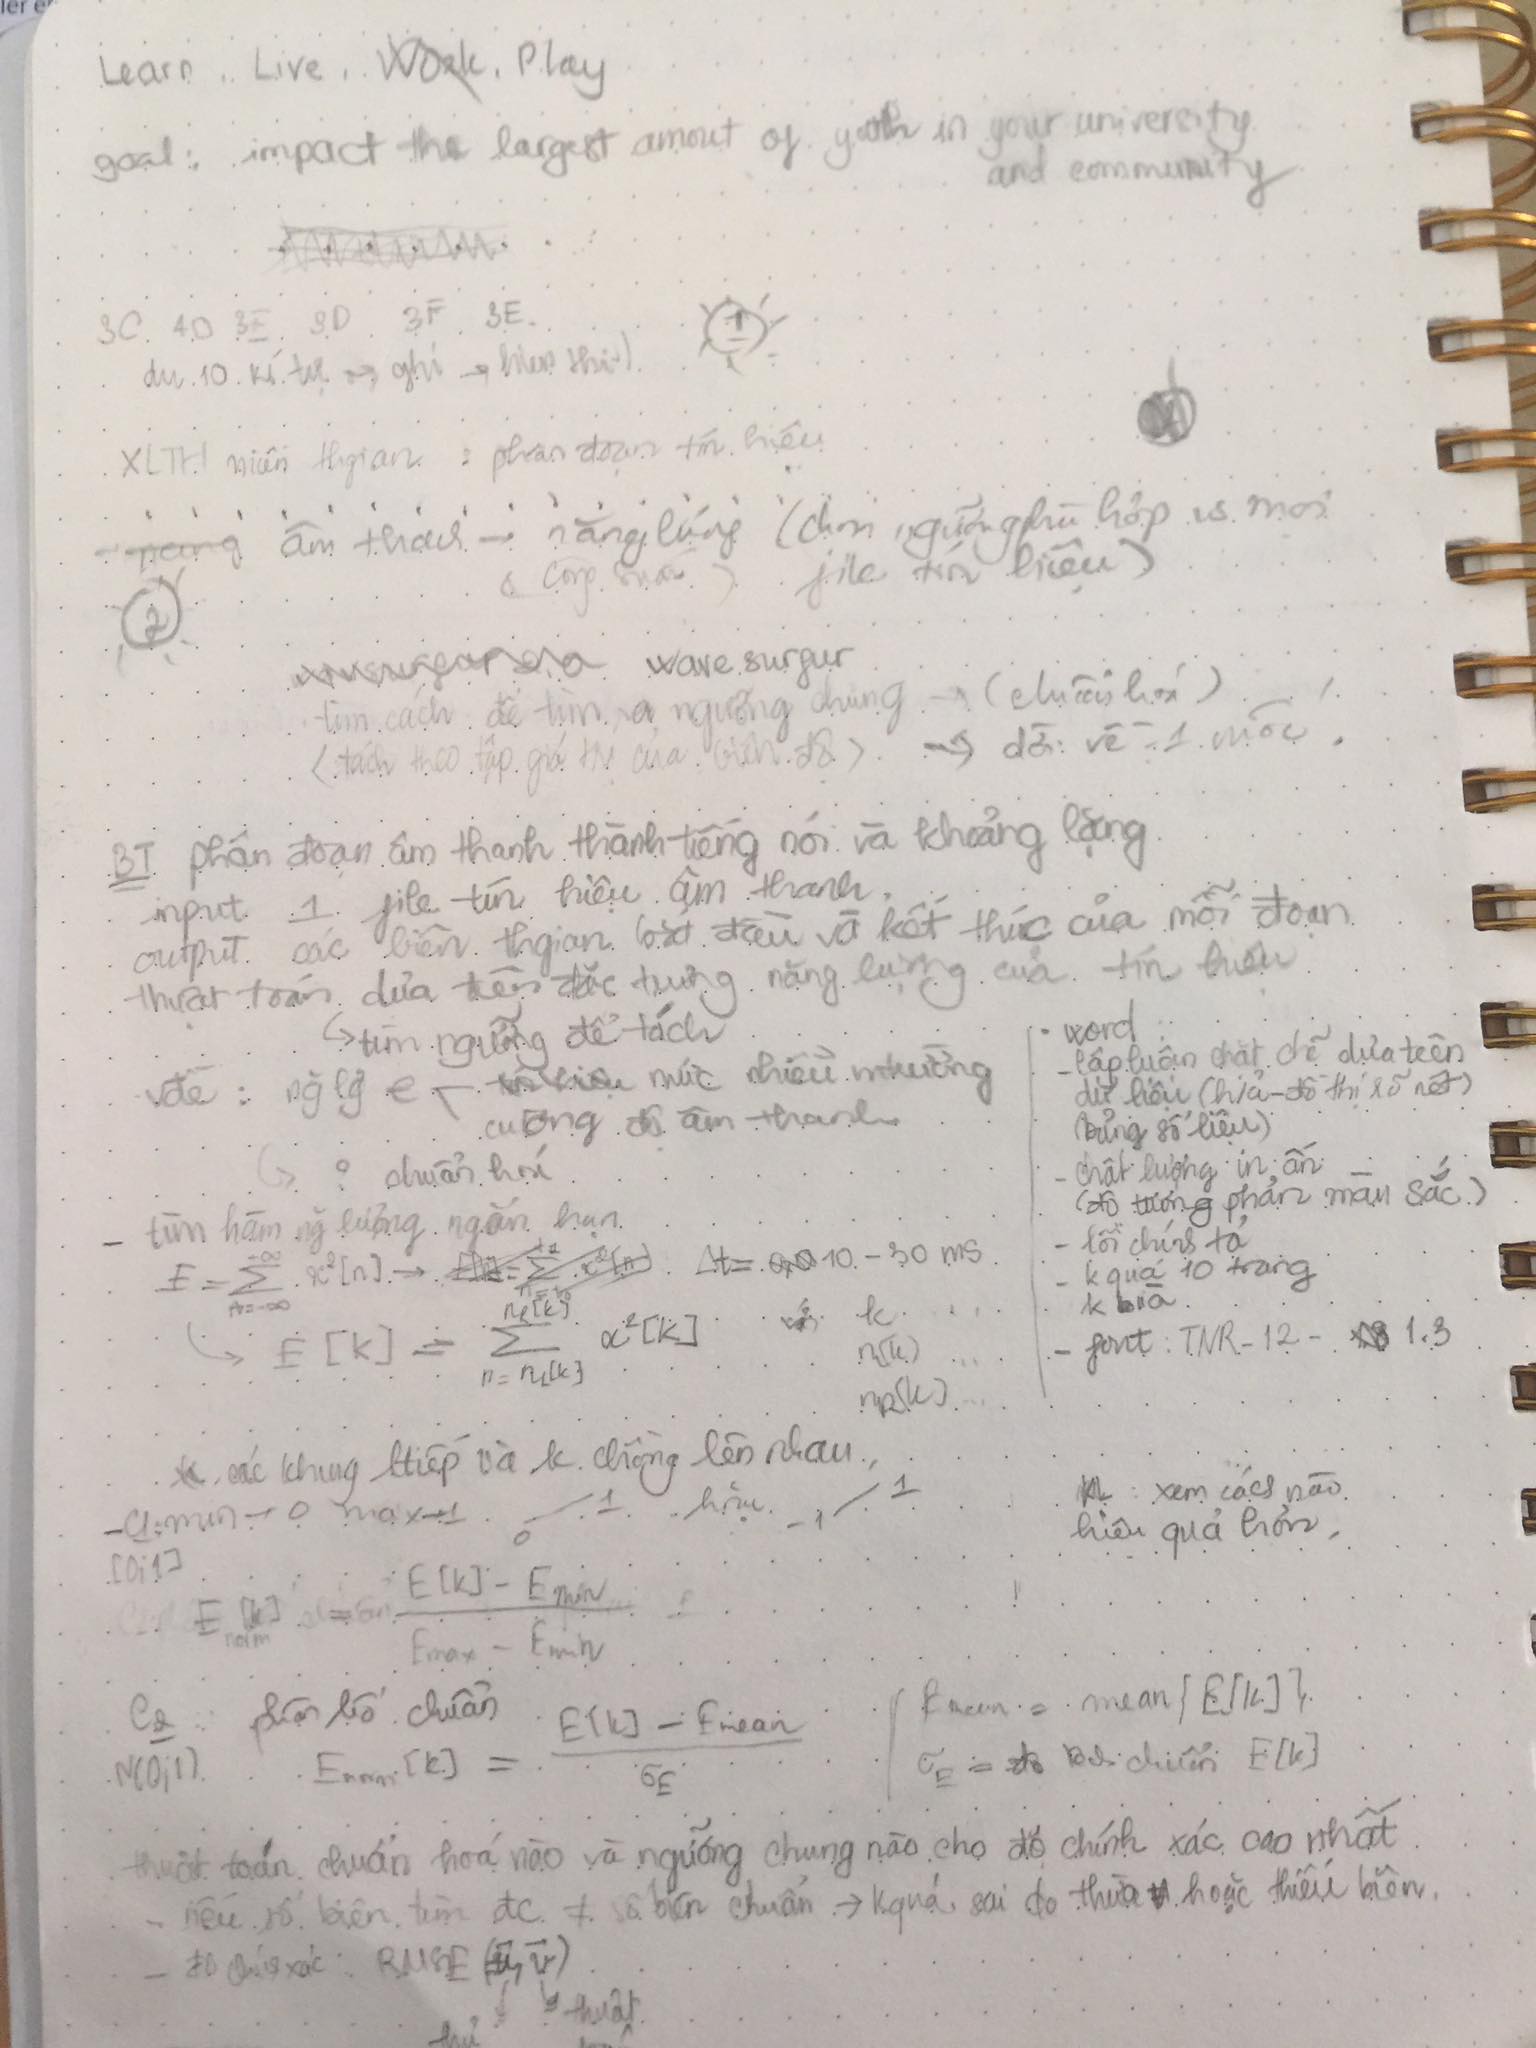 Learn, Live, Work, Play
goal: impact the largest amout of youth in your university
and community
3C 4D 3E 3D 3F 3E
du 10 kí tự → ghi → hiển thị)
1
XLTH miền thgian : phân đoạn tín hiệu
âm thanh → năng lượng (chọn ngưỡng phù hợp vs mọi
(công suất) file tín hiệu)
2
wave surfur
tìm cách để tìm ra ngưỡng chung → (chuẩn hoá)
(tách theo tập giá trị của biên độ) → dời về 1 mốc
BT phân đoạn âm thanh thành tiếng nói và khoảng lặng
input 1 file tín hiệu âm thanh.
output các biên thgian bắt đầu và kết thúc của mỗi đoạn
thuật toán dựa trên đặc trưng năng lượng của tín hiệu
↳ tìm ngưỡng để tách
vđề : ng lg e mức nhiễu mtrường
cường độ âm thanh
↳ ? chuẩn hoá
• word
- lập luận chặt chẽ dựa trên
dữ liệu (h/ả - đồ thị rõ nét)
(bảng số liệu)
- chất lượng in ấn
(độ tương phản màu sắc)
- lỗi chính tả
- k quá 10 trang
k bìa
- font : TNR - 12 - 1.3
- tìm hàm ng lượng ngắn hạn
E = ∑ n=-∞ +∞ x²[n] → Δt = 10 - 30 ms
↳ E[k] = ∑ x²[k] k ...
n(k) ...
...
các khung ltiếp và k chồng lên nhau.
- C1: min → 0 max → 1 0 / 1 hoặc -1 / 1
[0;1]
: xem cách nào
hiệu quả hơn.
E norm [k] = E[k] - Emin / Emax - Emin
C2 : phân bố chuẩn
N(0;1) Enorm[k] = E[k] - Emean / σE
Emean = mean{E[k]}
σE = độ lệch chuẩn E[k]
thuật toán chuẩn hoá nào và ngưỡng chung nào cho độ chính xác cao nhất
- nếu số biên tìm đc ≠ số biên chuẩn → kquả sai do thừa hoặc thiếu biên.
- độ chính xác : RMSE (u, v)
thủ thuật